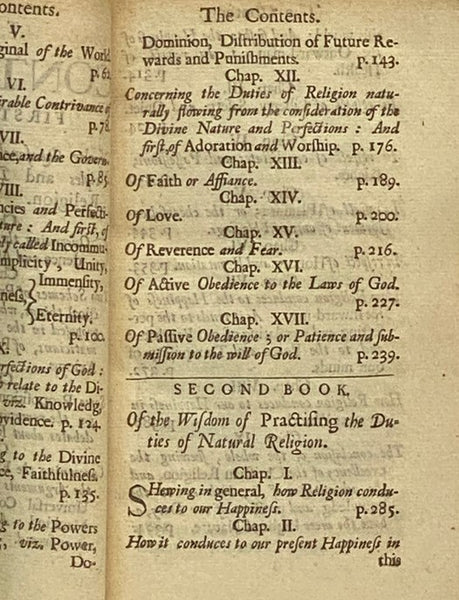 ontents.
V.
ginal of the World
p.62
VI.
irable Contrivance of
p.78
VII.
nce, and the Govern-
p.85.
VIII.
ncies and Perfecti-
ture: And first, of
ly called Incommu-
mplicity, Unity,
Immensity,
ness,
Eternity.
p.100
X.
rfections of God:
o relate to the Di-
viz. Knowledg,
ovidence. p.124.
ng to the Divine
ce, Faithfulneſs.
p.135.
ng to the Powers
, viz. Power,
Do-
The Contents.
Dominion, Diſtribution of Future Re-
wards and Puniſhments. p.143.
Chap. XII.
Concerning the Duties of Religion natu-
rally flowing from the conſideration of the
Divine Nature and Perfections: And
firſt, of Adoration and Worſhip. p. 176.
Chap. XIII.
Of Faith or Affiance. p.189.
Chap. XIV.
Of Love. p.200.
Chap. XV.
Of Reverence and Fear. p.216.
Chap. XVI.
Of Active Obedience to the Laws of God.
p.227.
Chap. XVII.
Of Paſſive Obedience; or Patience and ſub-
miſſion to the will of God. p.239.
SECOND BOOK.
Of the Wiſdom of Practiſing the Du-
ties of Natural Religion.
Chap. I.
SHewing in general, how Religion condu-
ces to our Happineſs. p.285.
Chap. II.
How it conduces to our preſent Happineſs in
this